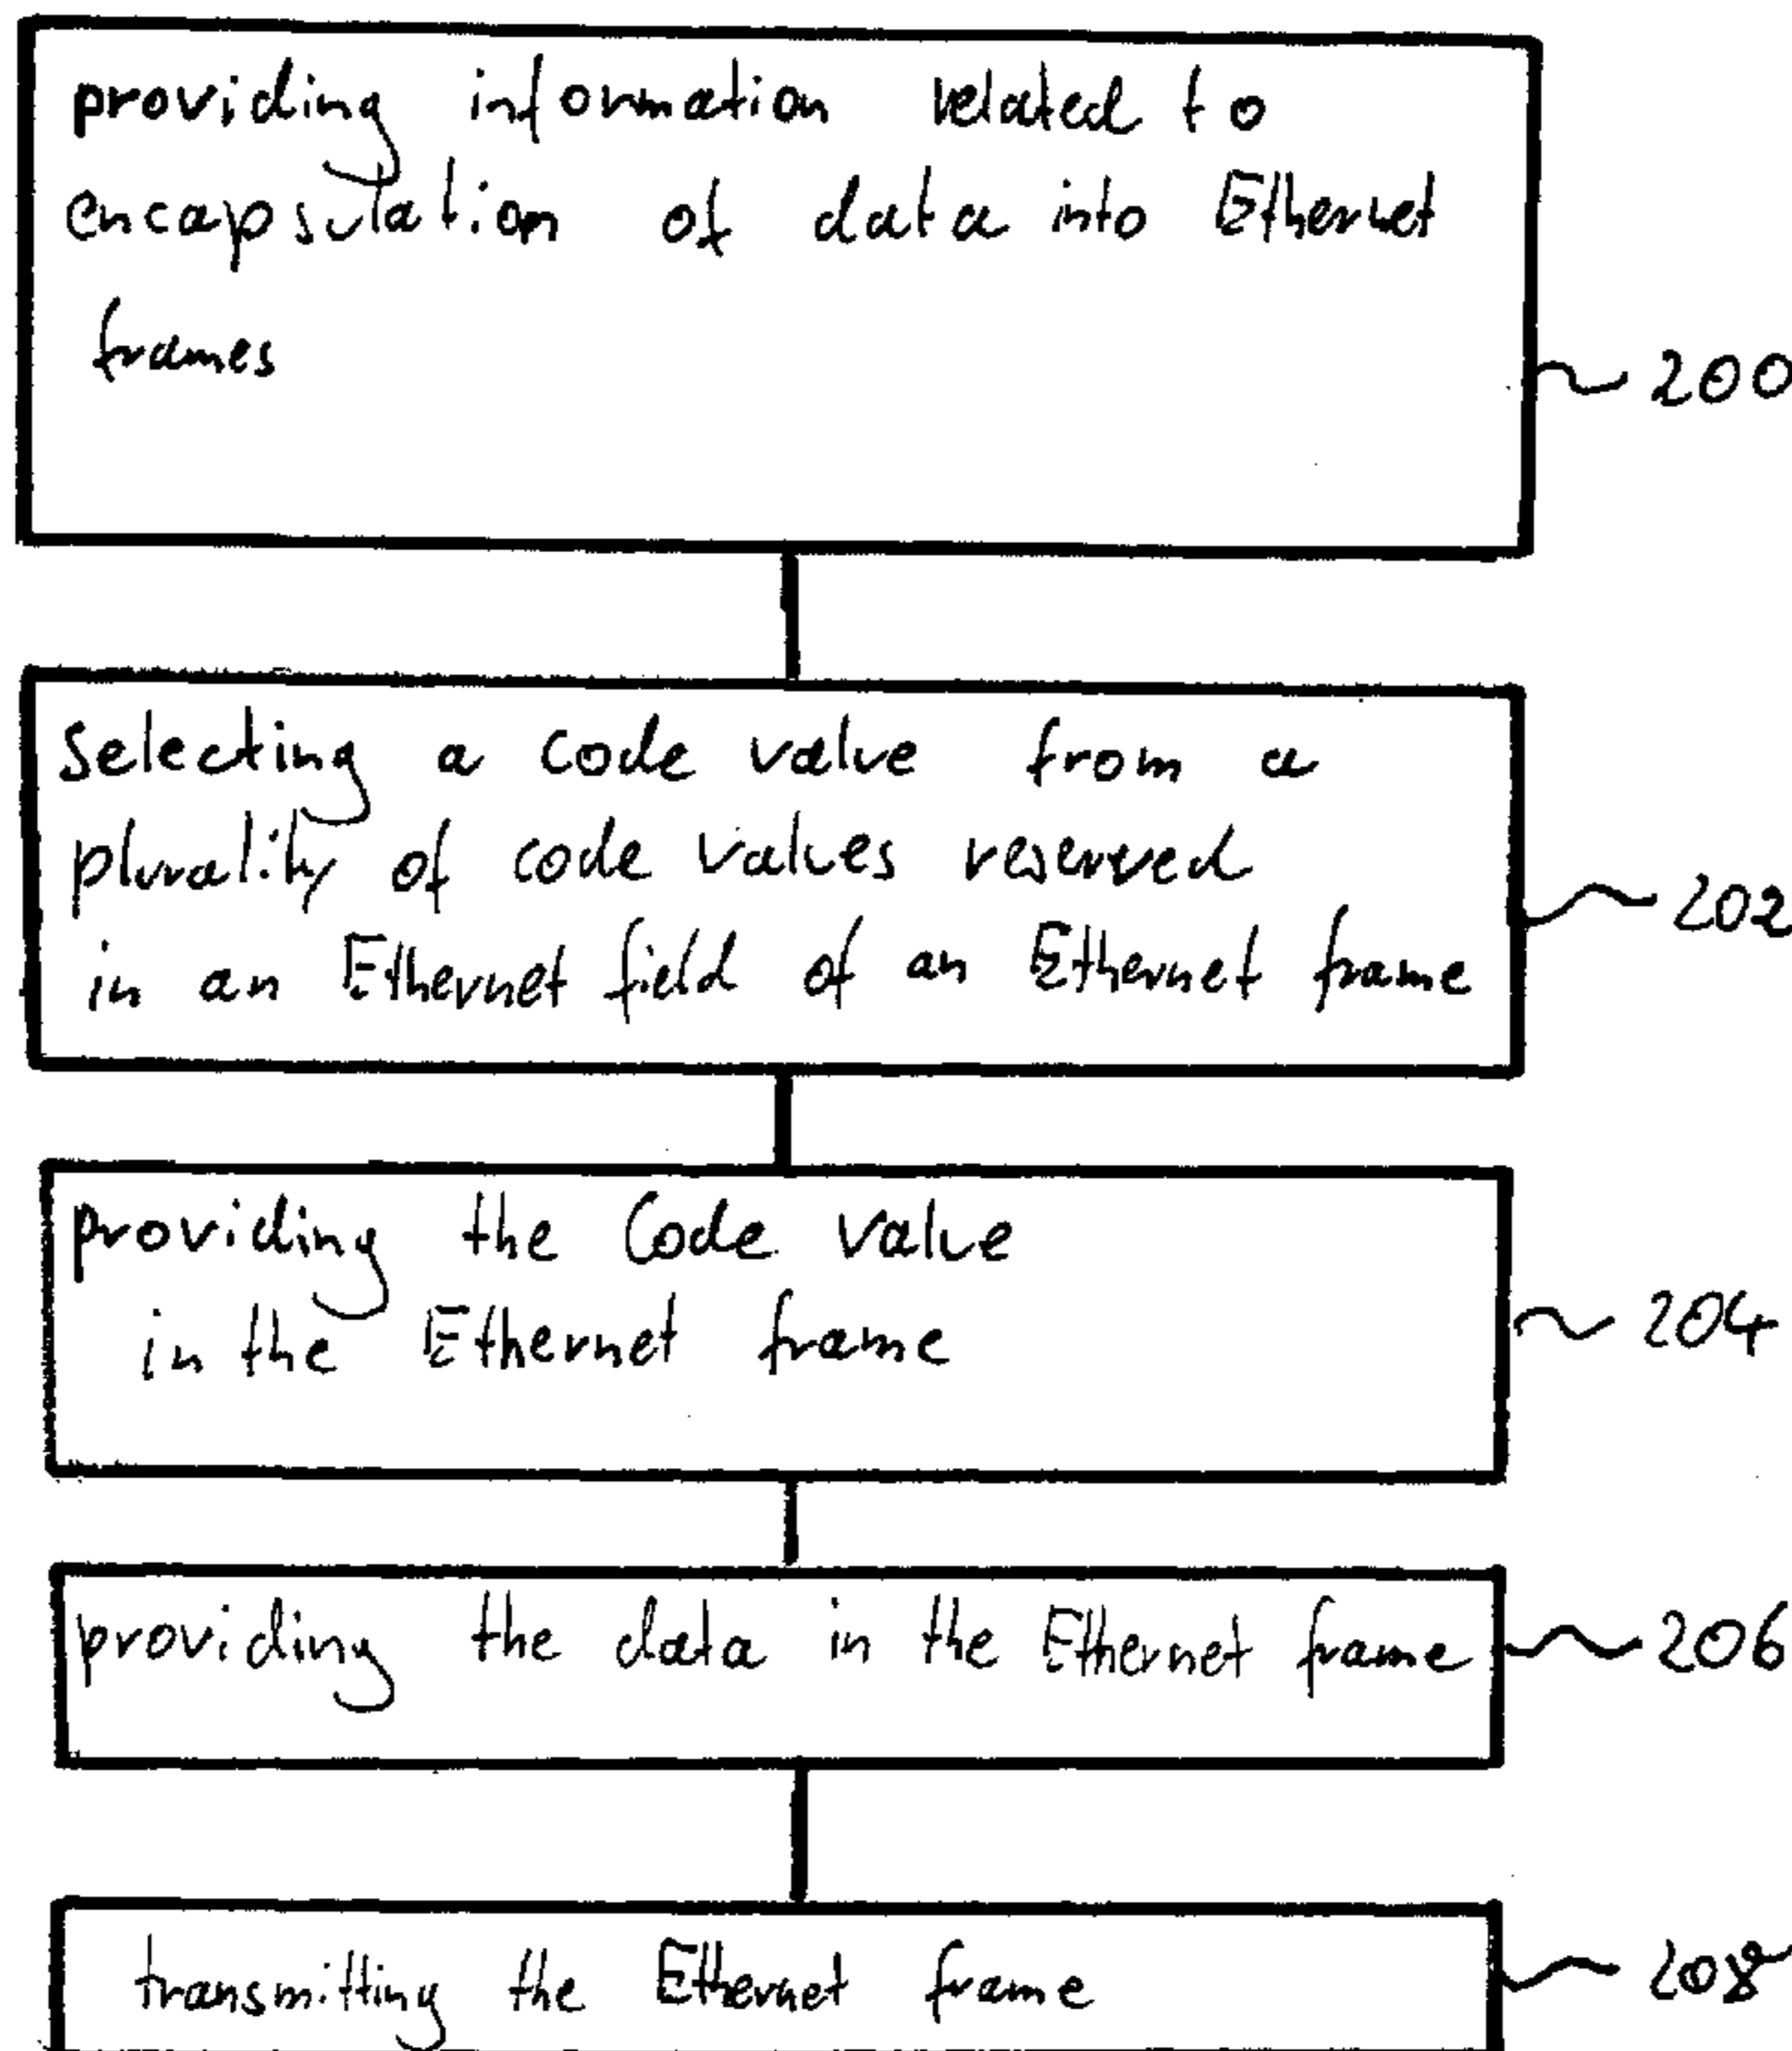 providing information related to
encapsulation of data into Ethernet
frames
200
Selecting a code value from a
plurality of code values reserved
in an Ethernet field of an Ethernet frame
202
providing the Code value
in the Ethernet frame
204
providing the data in the Ethernet frame
206
transmitting the Ethernet frame
208